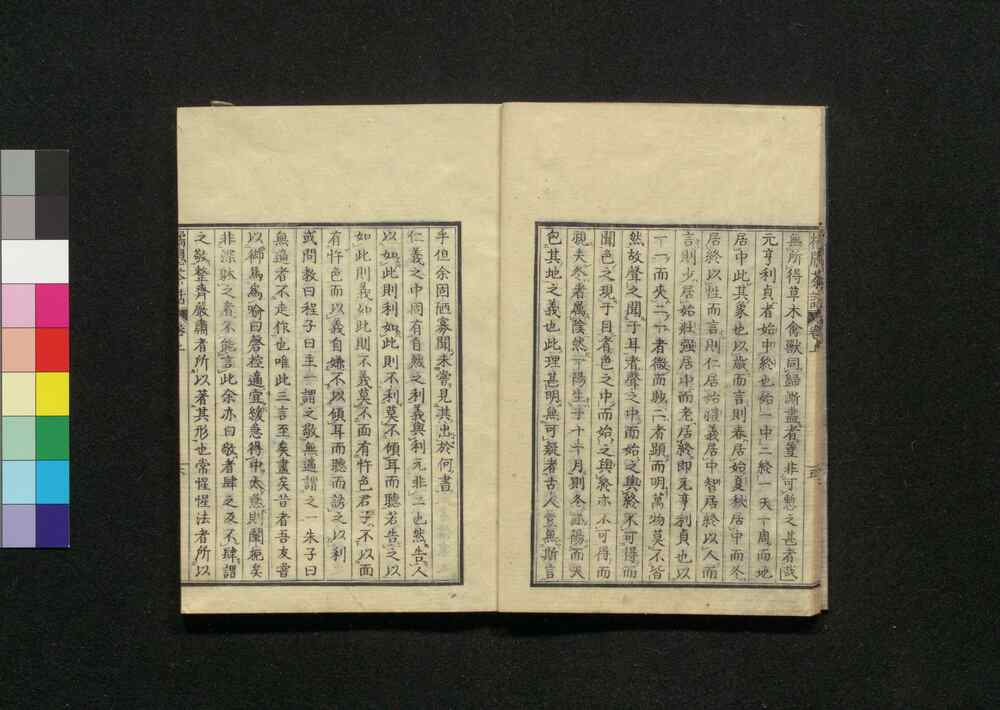 無所得草木禽獸同歸澌盡者豈非可愍之甚者哉
元亨利貞者始中終也始一中二終一天一周而地
居中此其象也以歲而言則春居始夏秋居中而冬
居終以性而言則仁居始禮義居中智居終以人而
言則少居始壯强居中而老居終即元亨利貞也以
一二而夾二一者微而二者顯而明萬物莫不皆
然故聲之聞于耳者聲之中而始之與終不可得而
聞色之現于目者色之中而始之與終亦不可得而
視夫冬者屬陰然一陽生于十一月則冬亦陽而天
包其地之義也此理甚明無可疑者古人豈無斯言
乎但余固陋寡聞未嘗見其出於何書
仁義之中固有自然之利義與利元非二也然告人
以如此則利如此則不利莫不傾耳而聽若告之以
如此則義如此則不義莫不面有忤色君子不以面
有忤色而以義自嫌不以傾耳而聽而誘之以利
或問敬曰程子曰主一謂之敬無適謂之一朱子曰
無適者不走作也唯此三言至矣盡矣昔者吾友嘗
以御馬爲喩曰磬控適宜緩急得中太急則闌扼矣
非深昧之者不能言此余亦曰敬者肆之反不肆謂
之敬整齊嚴肅者所以著其形也常惺惺法者所以
卷上